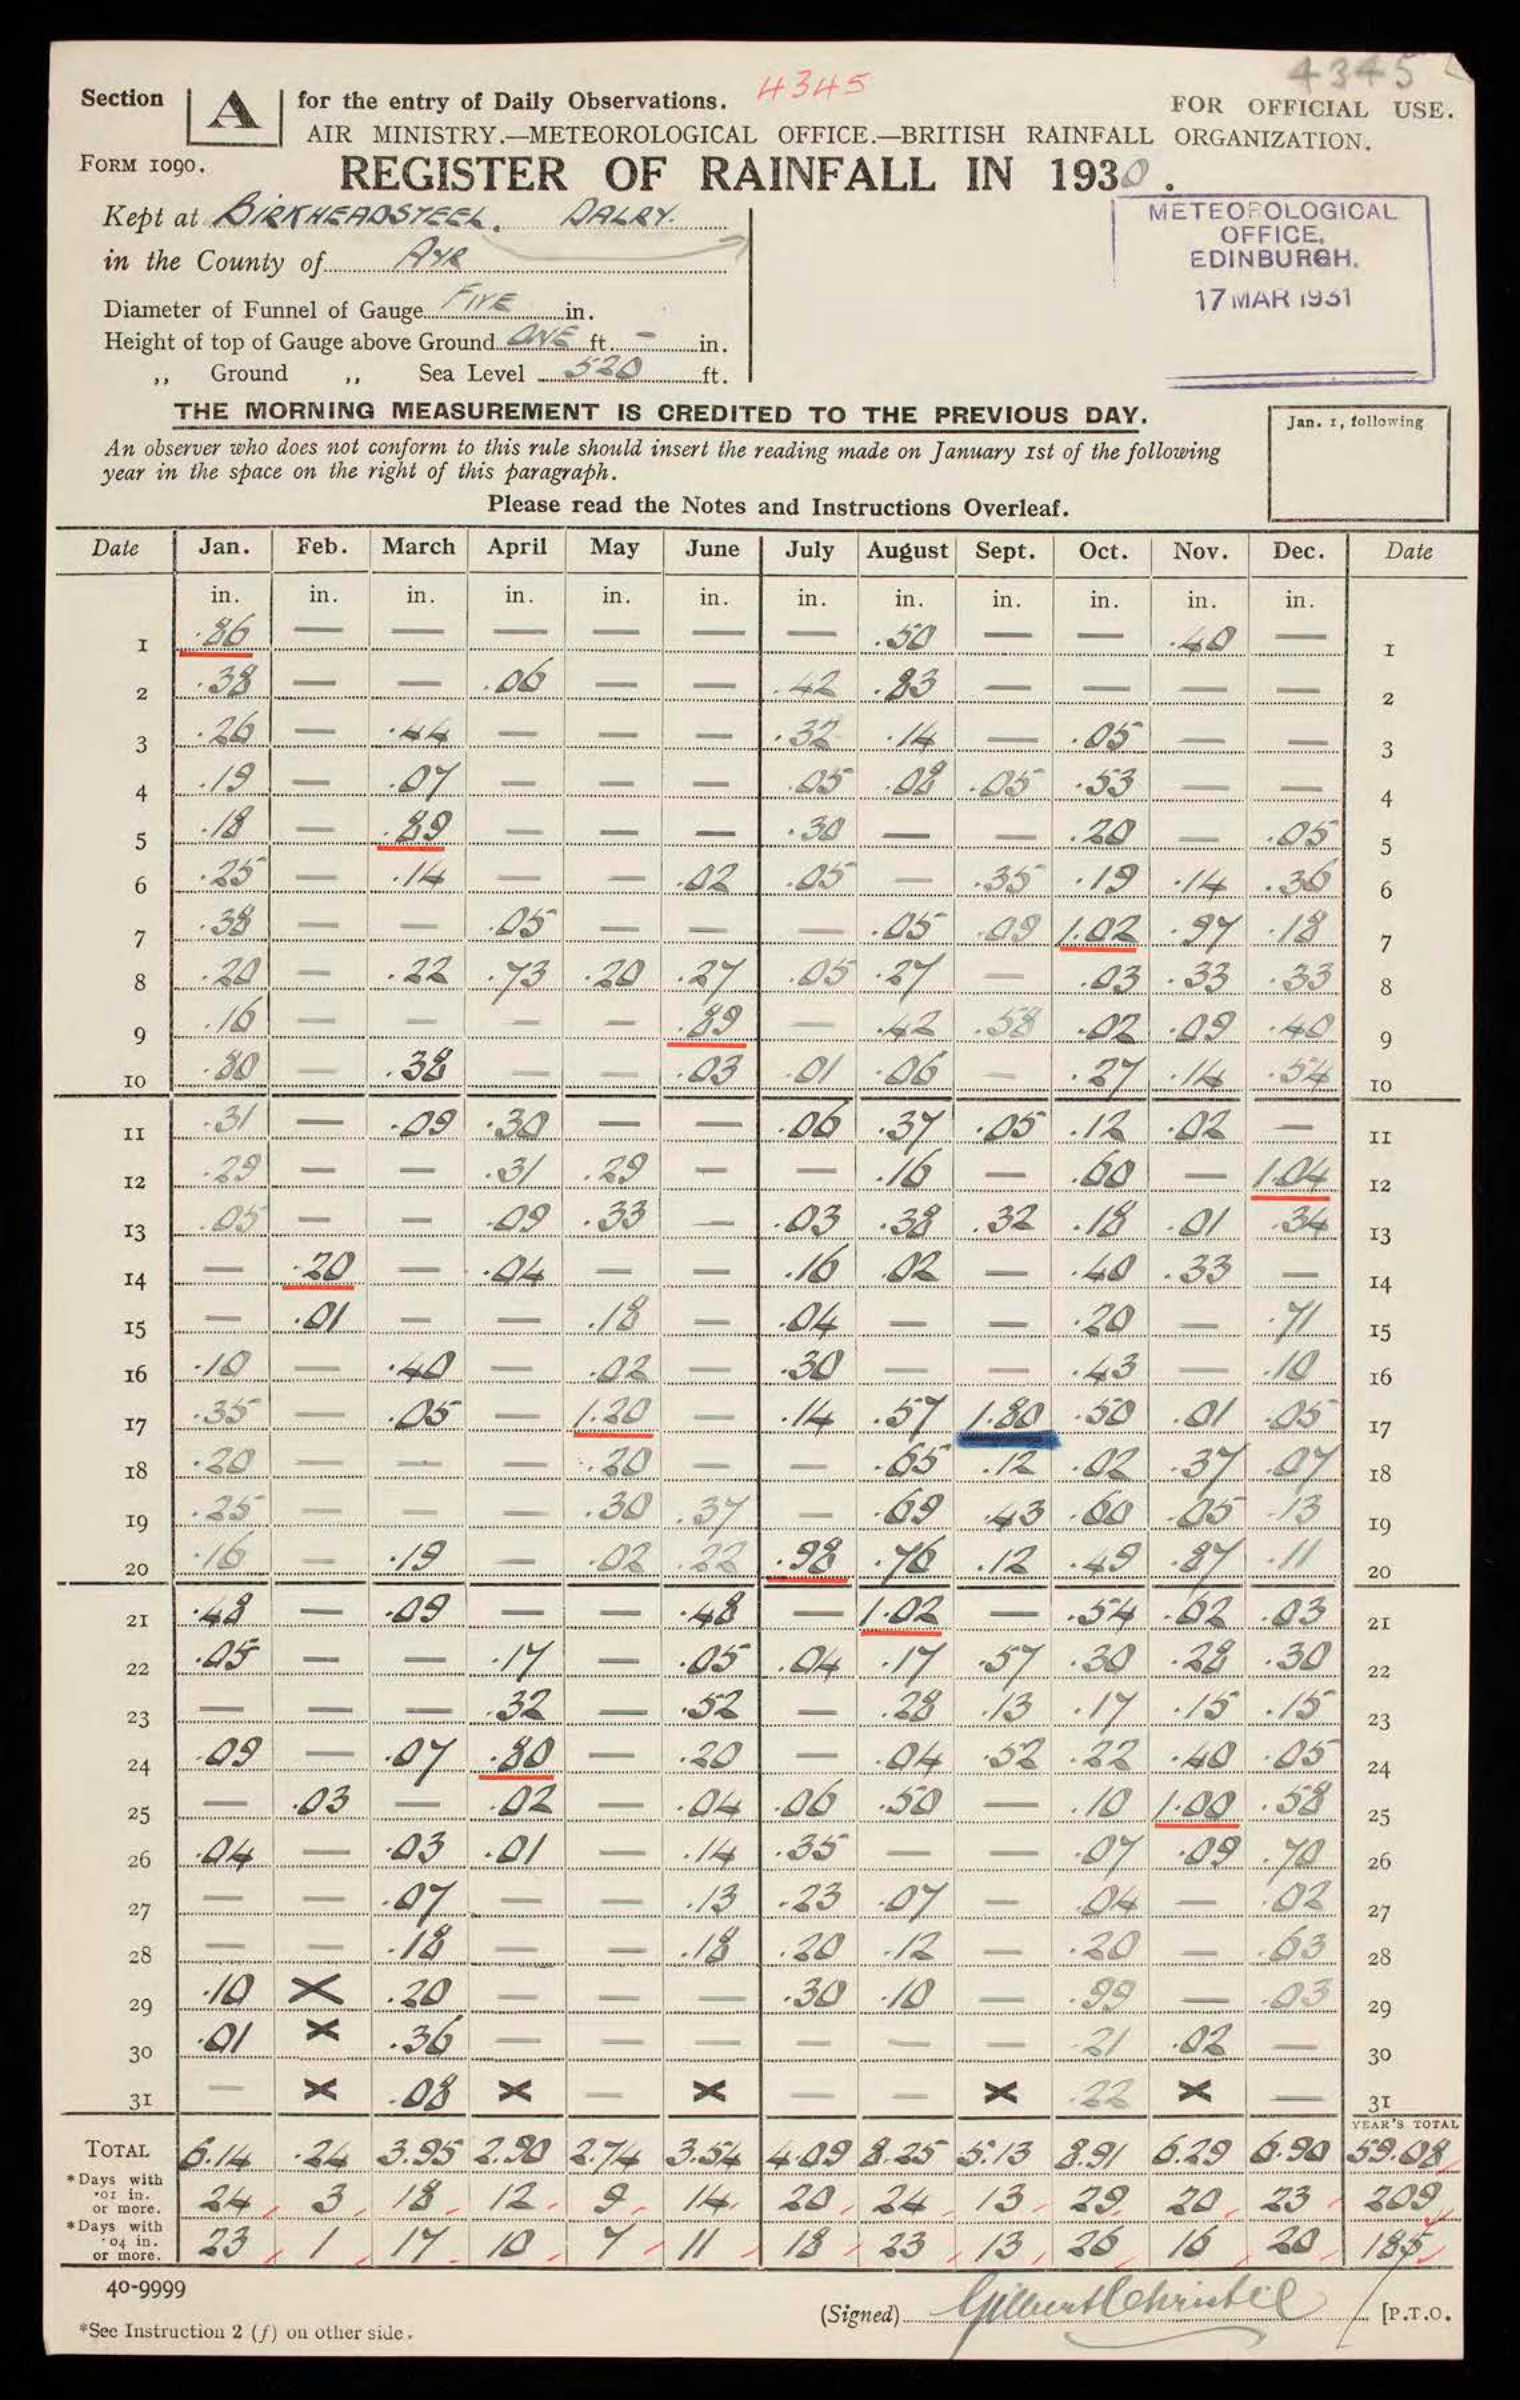 4345
4345
Section A for the entry of Daily Observations.
FOR OFFICIAL USE.
AIR MINISTRY.—METEOROLOGICAL OFFICE.—BRITISH RAINFALL ORGANIZATION.
FORM 1090.
REGISTER OF RAINFALL IN 1930.
Kept at BIRKHEADSTEEL. DALRY.
in the County of AYR
Diameter of Funnel of Gauge FIVE in.
Height of top of Gauge above Ground ONE ft. – in.
,, Ground ,, Sea Level 520 ft.
METEOROLOGICAL
OFFICE,
EDINBURGH.
17 MAR 1931
THE MORNING MEASUREMENT IS CREDITED TO THE PREVIOUS DAY.
An observer who does not conform to this rule should insert the reading made on January 1st of the following
year in the space on the right of this paragraph.
Jan. 1, following
Please read the Notes and Instructions Overleaf.
Date Jan. Feb. March April May June July August Sept. Oct. Nov. Dec. Date
in. in. in. in. in. in. in. in. in. in. in. in.
1 .86 — — — — — — .50 — — .40 — 1
2 .38 — — .06 — — .42 .83 — — — — 2
3 .26 — .44 — — — .32 .14 — .05 — — 3
4 .19 — .07 — — — .05 .08 .05 .53 — — 4
5 .18 — .89 — — — .30 — — .20 — .05 5
6 .25 — .14 — — .02 .05 — .35 .19 .14 .36 6
7 .38 — — .05 — — — .05 .09 1.02 .97 .18 7
8 .20 — .22 .73 .20 .27 .05 .27 — .03 .33 .33 8
9 .16 — — — — .89 — .42 .58 .02 .09 .40 9
10 .80 — .38 — — .03 .01 .06 — .27 .14 .54 10
11 .31 — .09 .30 — — .06 .37 .05 .12 .02 — 11
12 .29 — — .31 .29 — — .16 — .60 — 1.04 12
13 .05 — — .09 .33 — .03 .38 .32 .18 .01 .34 13
14 — .20 — .04 — — .16 .02 — .40 .33 — 14
15 — .01 — — .18 — .04 — — .20 — .71 15
16 .10 — .40 — .02 — .30 — — .43 — .10 16
17 .35 — .05 — 1.20 — .14 .57 1.80 .50 .01 .05 17
18 .20 — — — .20 — — .65 .12 .02 .37 .07 18
19 .25 — — — .30 .37 — .69 .43 .60 .05 .13 19
20 .16 — .19 — .02 .22 .98 .76 .12 .49 .87 .11 20
21 .48 — .09 — — .48 — 1.02 — .54 .62 .03 21
22 .05 — — .17 — .05 .04 .17 .57 .30 .28 .30 22
23 — — — .32 — .52 — .28 .13 .17 .15 .15 23
24 .09 — .07 .80 — .20 — .04 .52 .22 .40 .05 24
25 — .03 — .02 — .04 .06 .50 — .10 1.00 .58 25
26 .04 — .03 .01 — .14 .35 — — .07 .09 .70 26
27 — — .07 — — .13 .23 .07 — .04 — .02 27
28 — — .18 — — .18 .20 .12 — .20 — .63 28
29 .10 × .20 — — — .30 .10 — .99 — .03 29
30 .01 × .36 — — — — — — .21 .02 — 30
31 — × .08 × — × — — × .22 × — 31
YEAR'S TOTAL
TOTAL 6.14 .24 3.95 2.90 2.74 3.54 4.09 8.25 5.13 8.91 6.29 6.90 59.08
*Days with
.01 in.
or more. 24 3 18 12 9 14 20 24 13 29 20 23 209
*Days with
.04 in.
or more. 23 1 17 10 7 11 18 23 13 26 16 20 185
40-9999
(Signed) Gilbert Christie
[P.T.O.
*See Instruction 2 (f) on other side.